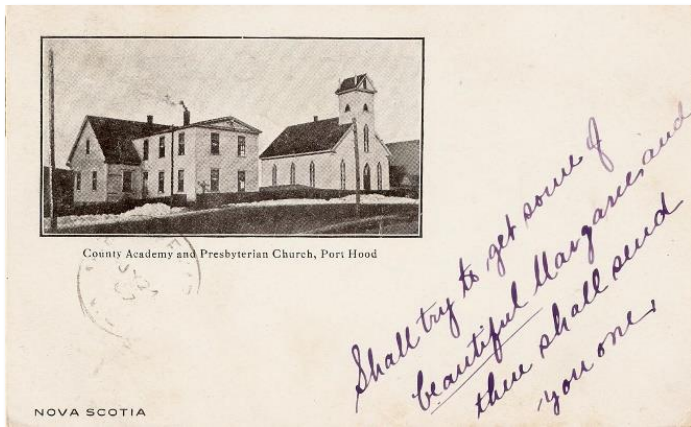 County Academy and Presbyterian Church, Port Hood
Shall try to get some of
beautiful Margaree, and
then shall send
you one,
NOVA SCOTIA